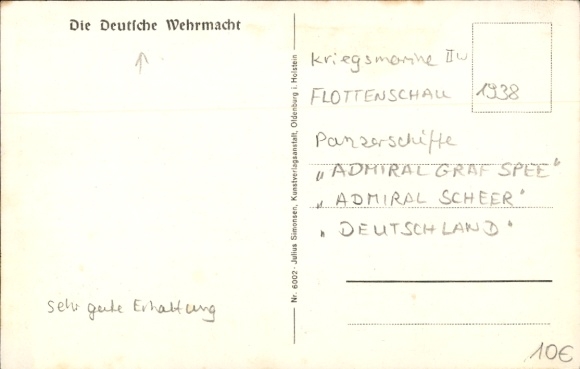 Die Deutsche Wehrmacht
Nr. 6002 · Julius Simonsen, Kunstverlagsanstalt, Oldenburg i. Holstein
Kriegsmarine II W
FLOTTENSCHAU 1938
Panzerschiffe
„ADMIRAL GRAF SPEE"
„ADMIRAL SCHEER"
„DEUTSCHLAND"
sehr gute Erhaltung
10€